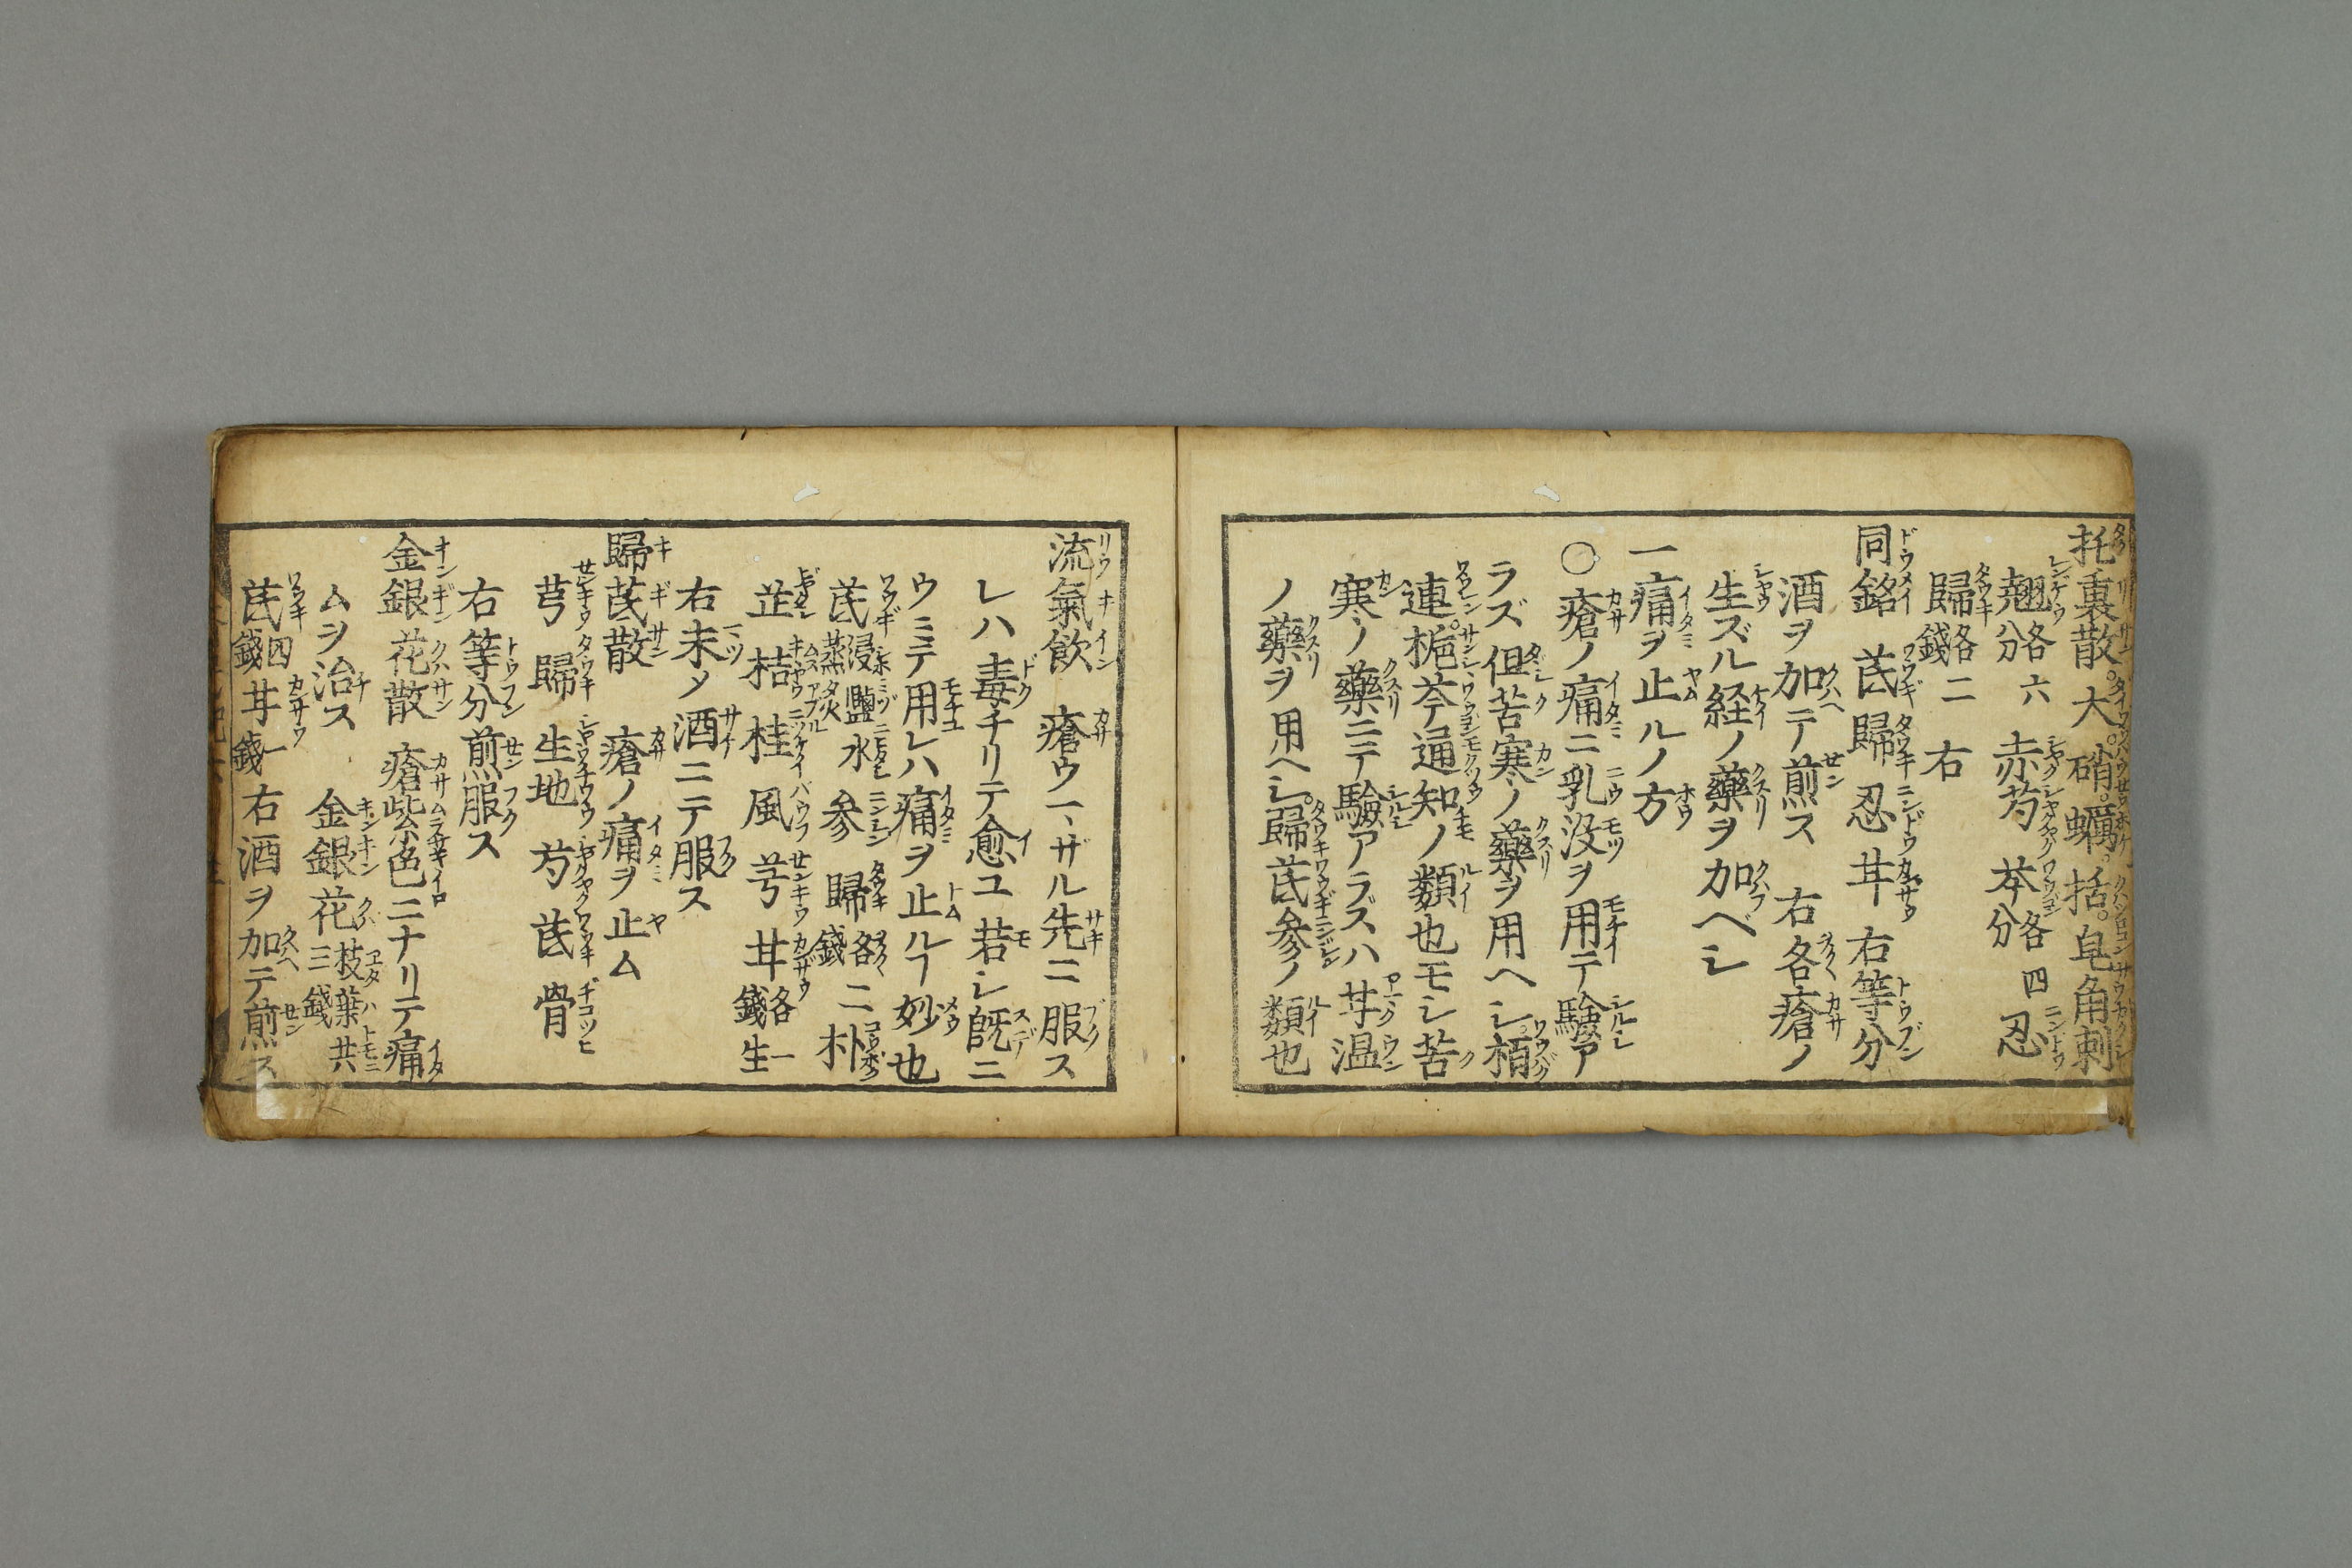 托裏散大硝蠣括皂角刺
翹各六分 赤芍 芩各四分 忍
歸各二錢 右
同銘 芪歸忍甘 右等分
酒ヲ加テ煎ス 右各瘡ノ
生ズル経ノ藥ヲ加ベシ
一痛ヲ止ルノ方
○瘡ノ痛ニ乳没ヲ用テ驗ア
ラズ但苦寒ノ藥ヲ用ヘシ栢
連梔芩通知ノ類也モシ苦
寒ノ藥ニテ驗アラズハ甘温
ノ藥ヲ用ヘシ歸芪參ノ類也
流氣飲 瘡ウマザル先ニ服ス
レハ毒チリテ愈ユ若シ既ニ
ウミテ用レハ痛ヲ止ルヿ妙也
芪浸鹽水蒸炙 參 歸各二錢 朴
芷 桔 桂 風 芎 甘各一錢 生
右末メ酒ニテ服ス
歸芪散 瘡ノ痛ヲ止ム
芎 歸 生地 芍 芪 骨
右等分煎服ス
金銀花散 瘡紫色ニナリテ痛
ムヲ治ス 金銀花枝葉共三錢
芪四錢 甘一錢 右酒ヲ加テ煎ス